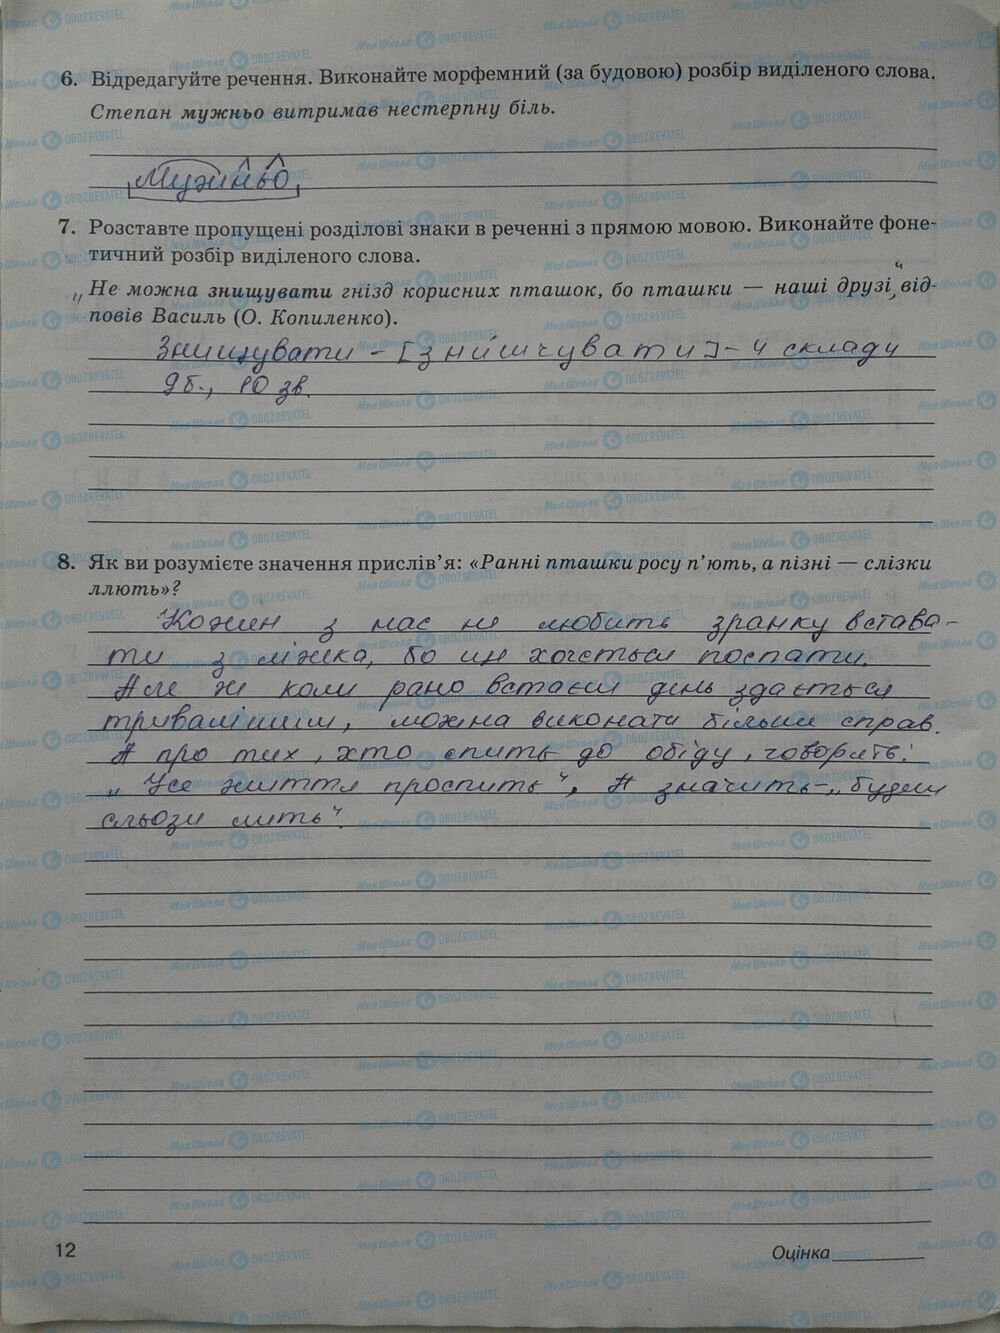 6. Відредагуйте речення. Виконайте морфемний (за будовою) розбір виділеного слова.
Степан мужньо витримав нестерпну біль.
Мужньо
7. Розставте пропущені розділові знаки в реченні з прямою мовою. Виконайте фоне-
тичний розбір виділеного слова.
„Не можна знищувати гнізд корисних пташок, бо пташки — наші друзі“, від-
повів Василь (О. Копиленко).
Знищувати - [знишчувати] - 4 склади
9 б., 10 зв.
8. Як ви розумієте значення прислів'я: «Ранні пташки росу п'ють, а пізні — слізки
ллють»?
Кожин з нас не любить зранку встава-
ти з ліжка, бо ще хочеться поспати.
Але ж коли рано встаєш день здається
тривалішим, можна виконати більше справ.
А про тих, хто спить до обіду, говорять:
„Усе життя проспить“, А значить-„буде
сльози лить“.
12
Оцінка